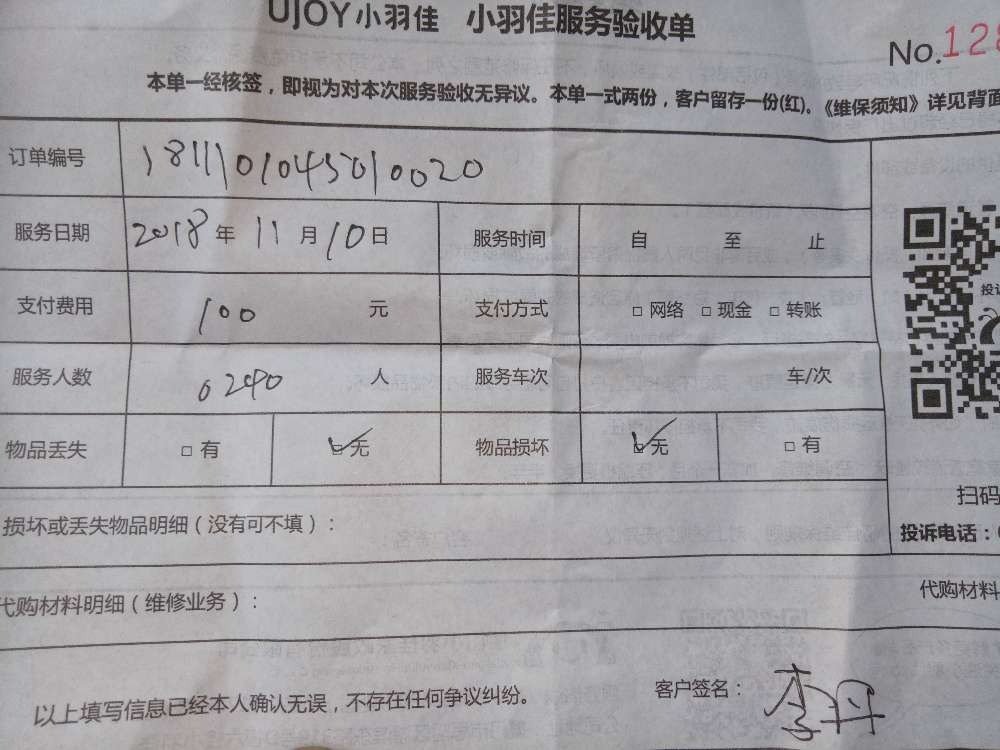 UJOY小羽佳 小羽佳服务验收单
No.128
本单一经核签，即视为对本次服务验收无异议。本单一式两份，客户留存一份(红)。《维保须知》详见背面
订单编号 181110104501 0020
服务日期 2018 年 11 月 10 日 服务时间 自 至 止
支付费用 100 元 支付方式 □ 网络 □ 现金 □ 转账
服务人数 0240 人 服务车次 车/次
物品丢失 □ 有 ☑ 无 物品损坏 ☑ 无 □ 有
扫码
损坏或丢失物品明细（没有可不填）：
投诉电话：
代购材料明细（维修业务）：
代购材料
以上填写信息已经本人确认无误，不存在任何争议纠纷。 客户签名： 李丹